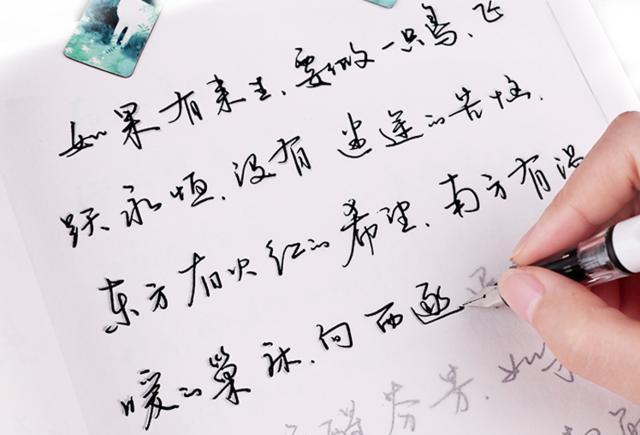 如果有来生,要做一只鸟,飞
跃永恒,没有迷途的苦恼.
东方有火红的希望,南方有温
暖的巢床,向西逐
醒芬芳.如